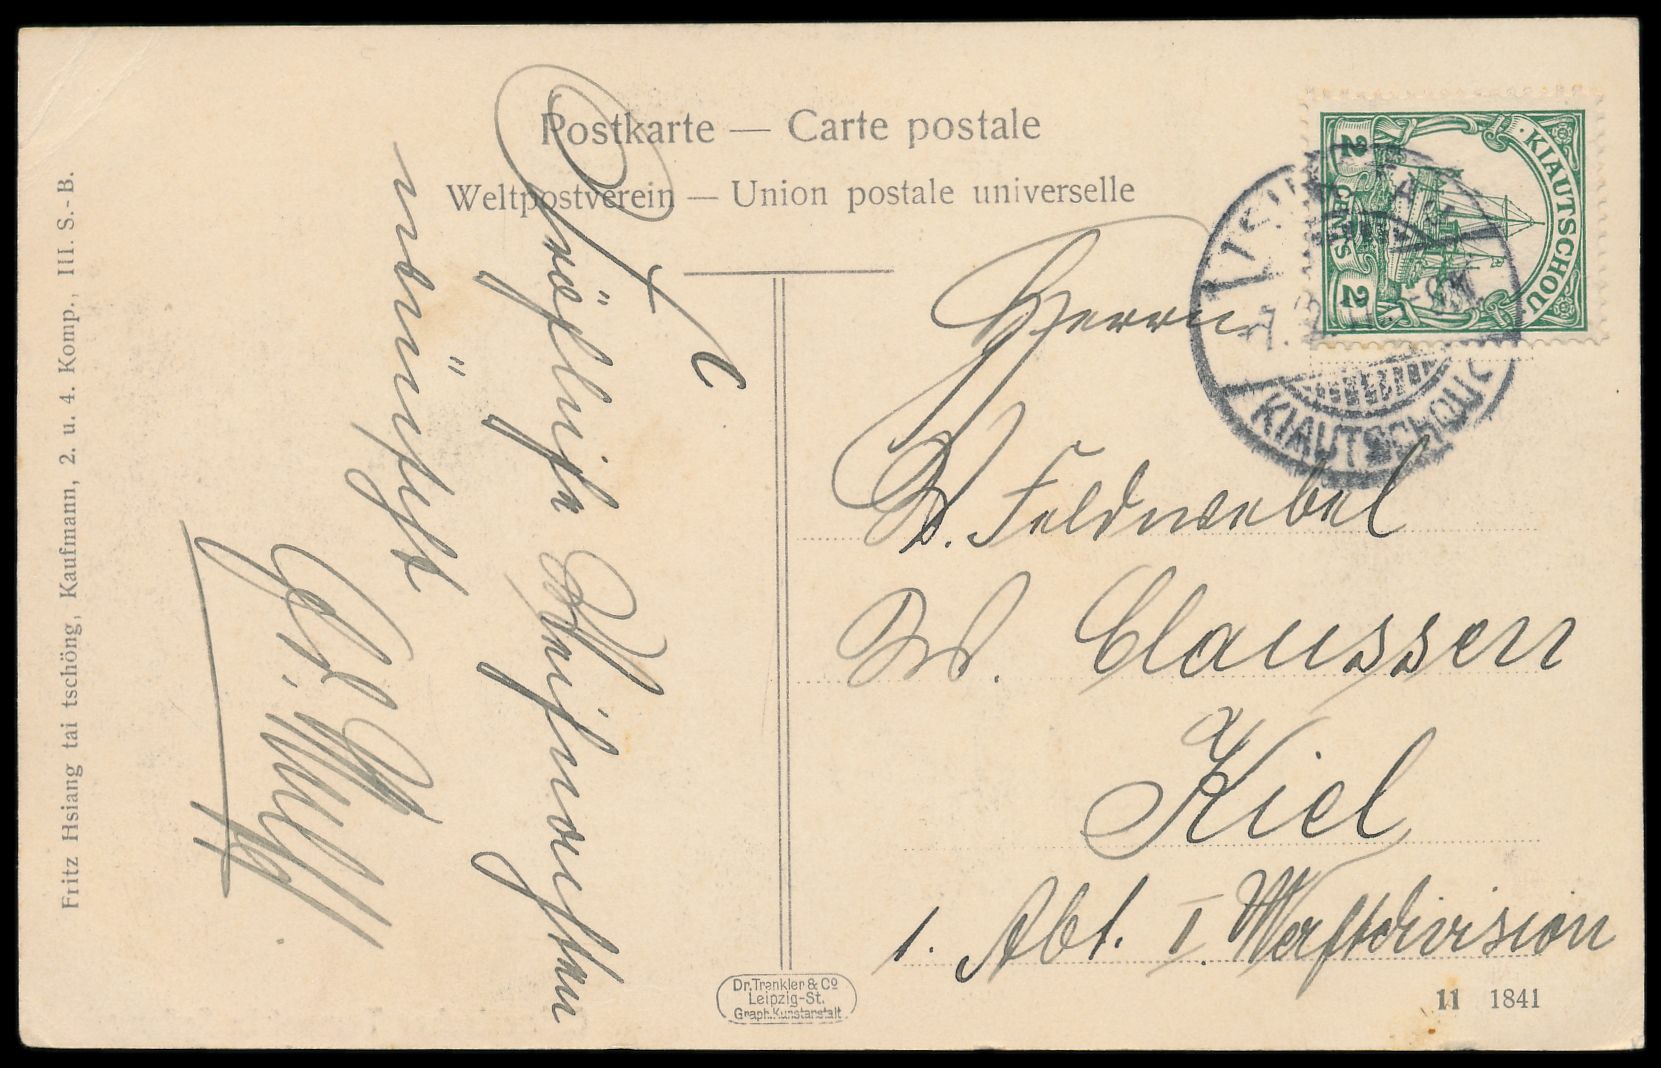 Postkarte — Carte postale
Weltpostverein — Union postale universelle
Fritz Hsiang tai tschöng, Kaufmann, 2. u. 4. Komp., III. S.-B.
Fröhliche Weihnachten
wünscht
Herrn
Feldwebel
W. Claussen
Kiel
1. Abt. I. Werftdivision
KIAUTSCHOU
2 CENTS 2
TSINGTAU
KIAUTSCHOU
Dr. Trenkler & Co
Leipzig-St.
Graph. Kunstanstalt
11 1841